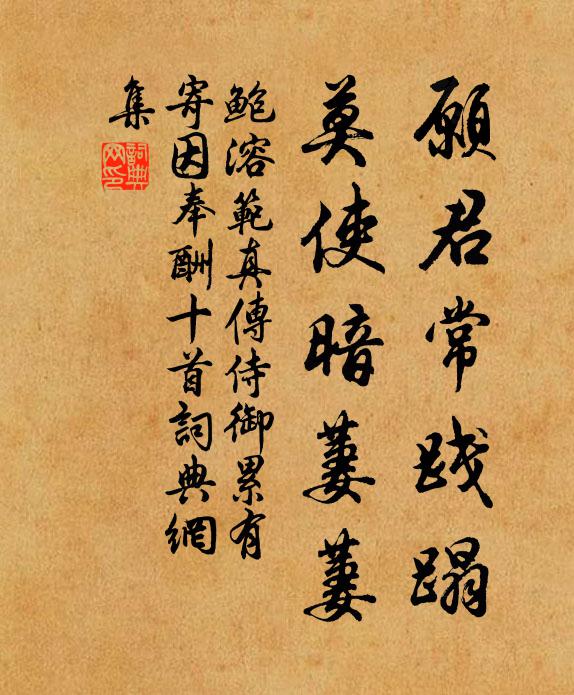 願君常踐蹋
莫使暗萋萋
鮑溶範真傳侍御累有
寄因奉酬十首詞典網
集
詞典網印